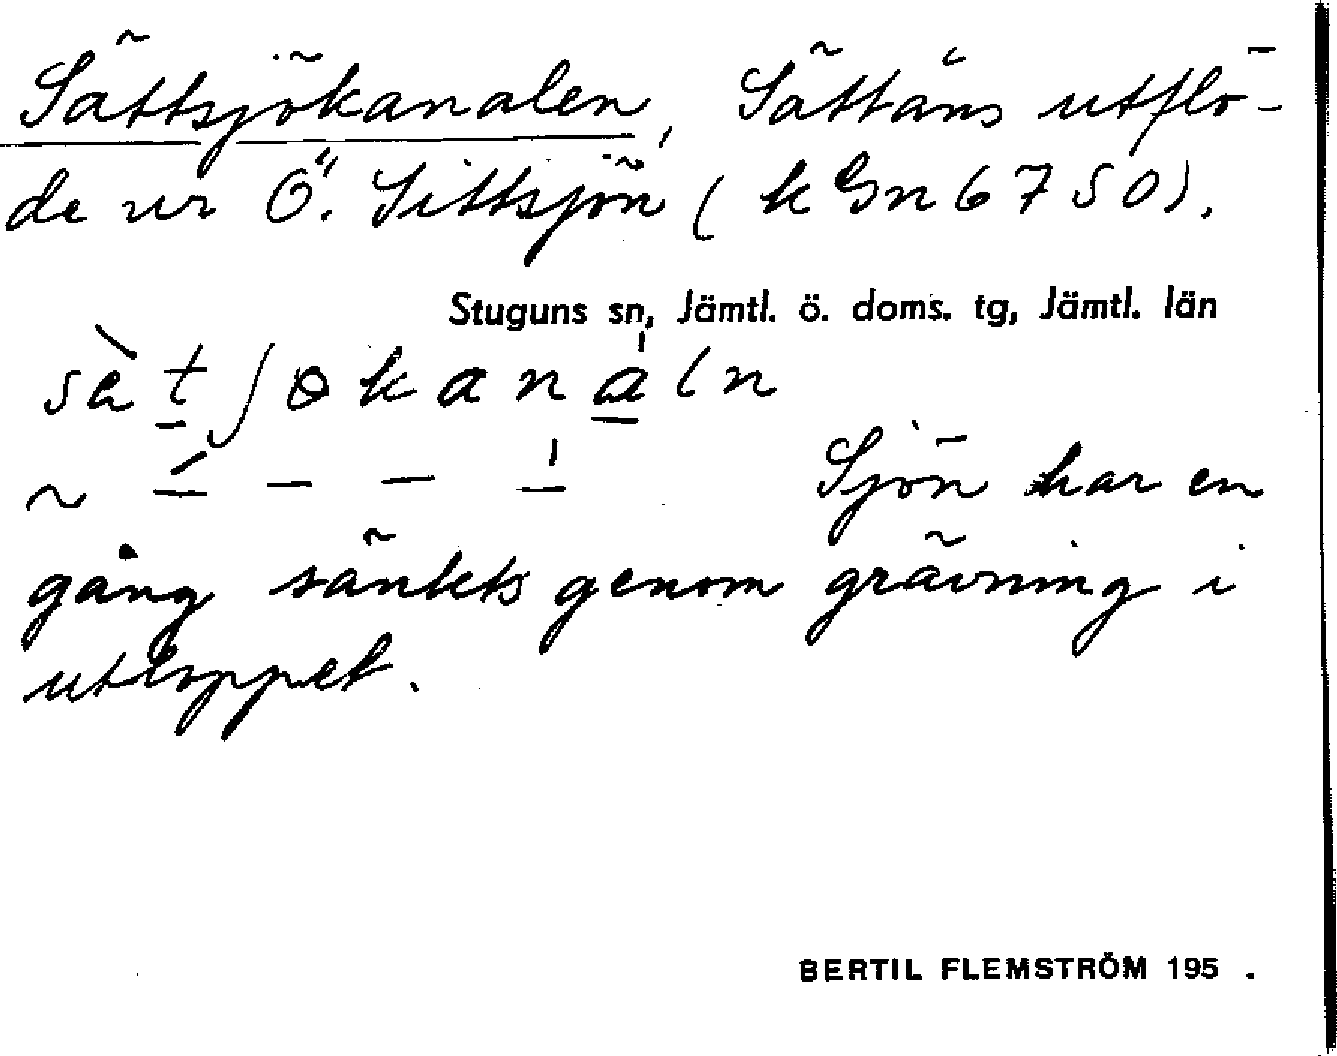 Sättsjökanalen, Sättåns utflö-
de ur Ö. Sittsjön (k Gn 6750).
Stuguns sn, Jämtl. ö. doms. tg, Jämtl. län
Sjön har en
gång sänkts genom grävning i
utloppet.
BERTIL FLEMSTRÖM 195 .